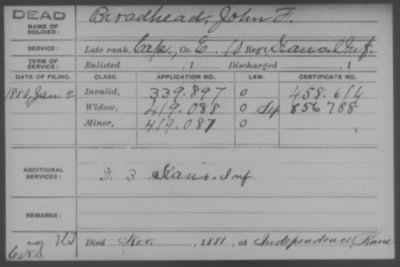 DEAD
NAME OF SOLDIER: Broadhead, John F.
SERVICE: Late rank, Cap., Co. E, 10 Reg't Kansas Inf.
TERM OF SERVICE: Enlisted , 1 Discharged , 1
DATE OF FILING. CLASS. APPLICATION NO. LAW. CERTIFICATE NO.
Jan. 2 Invalid, 339.897 0 458.614
Widow, 419.088 0 Sep 856788
Minor, 419.087 0
ADDITIONAL SERVICES: F. 3 Kans. Inf.
REMARKS:
Died Nov. , 1881, at Independence, Kans.